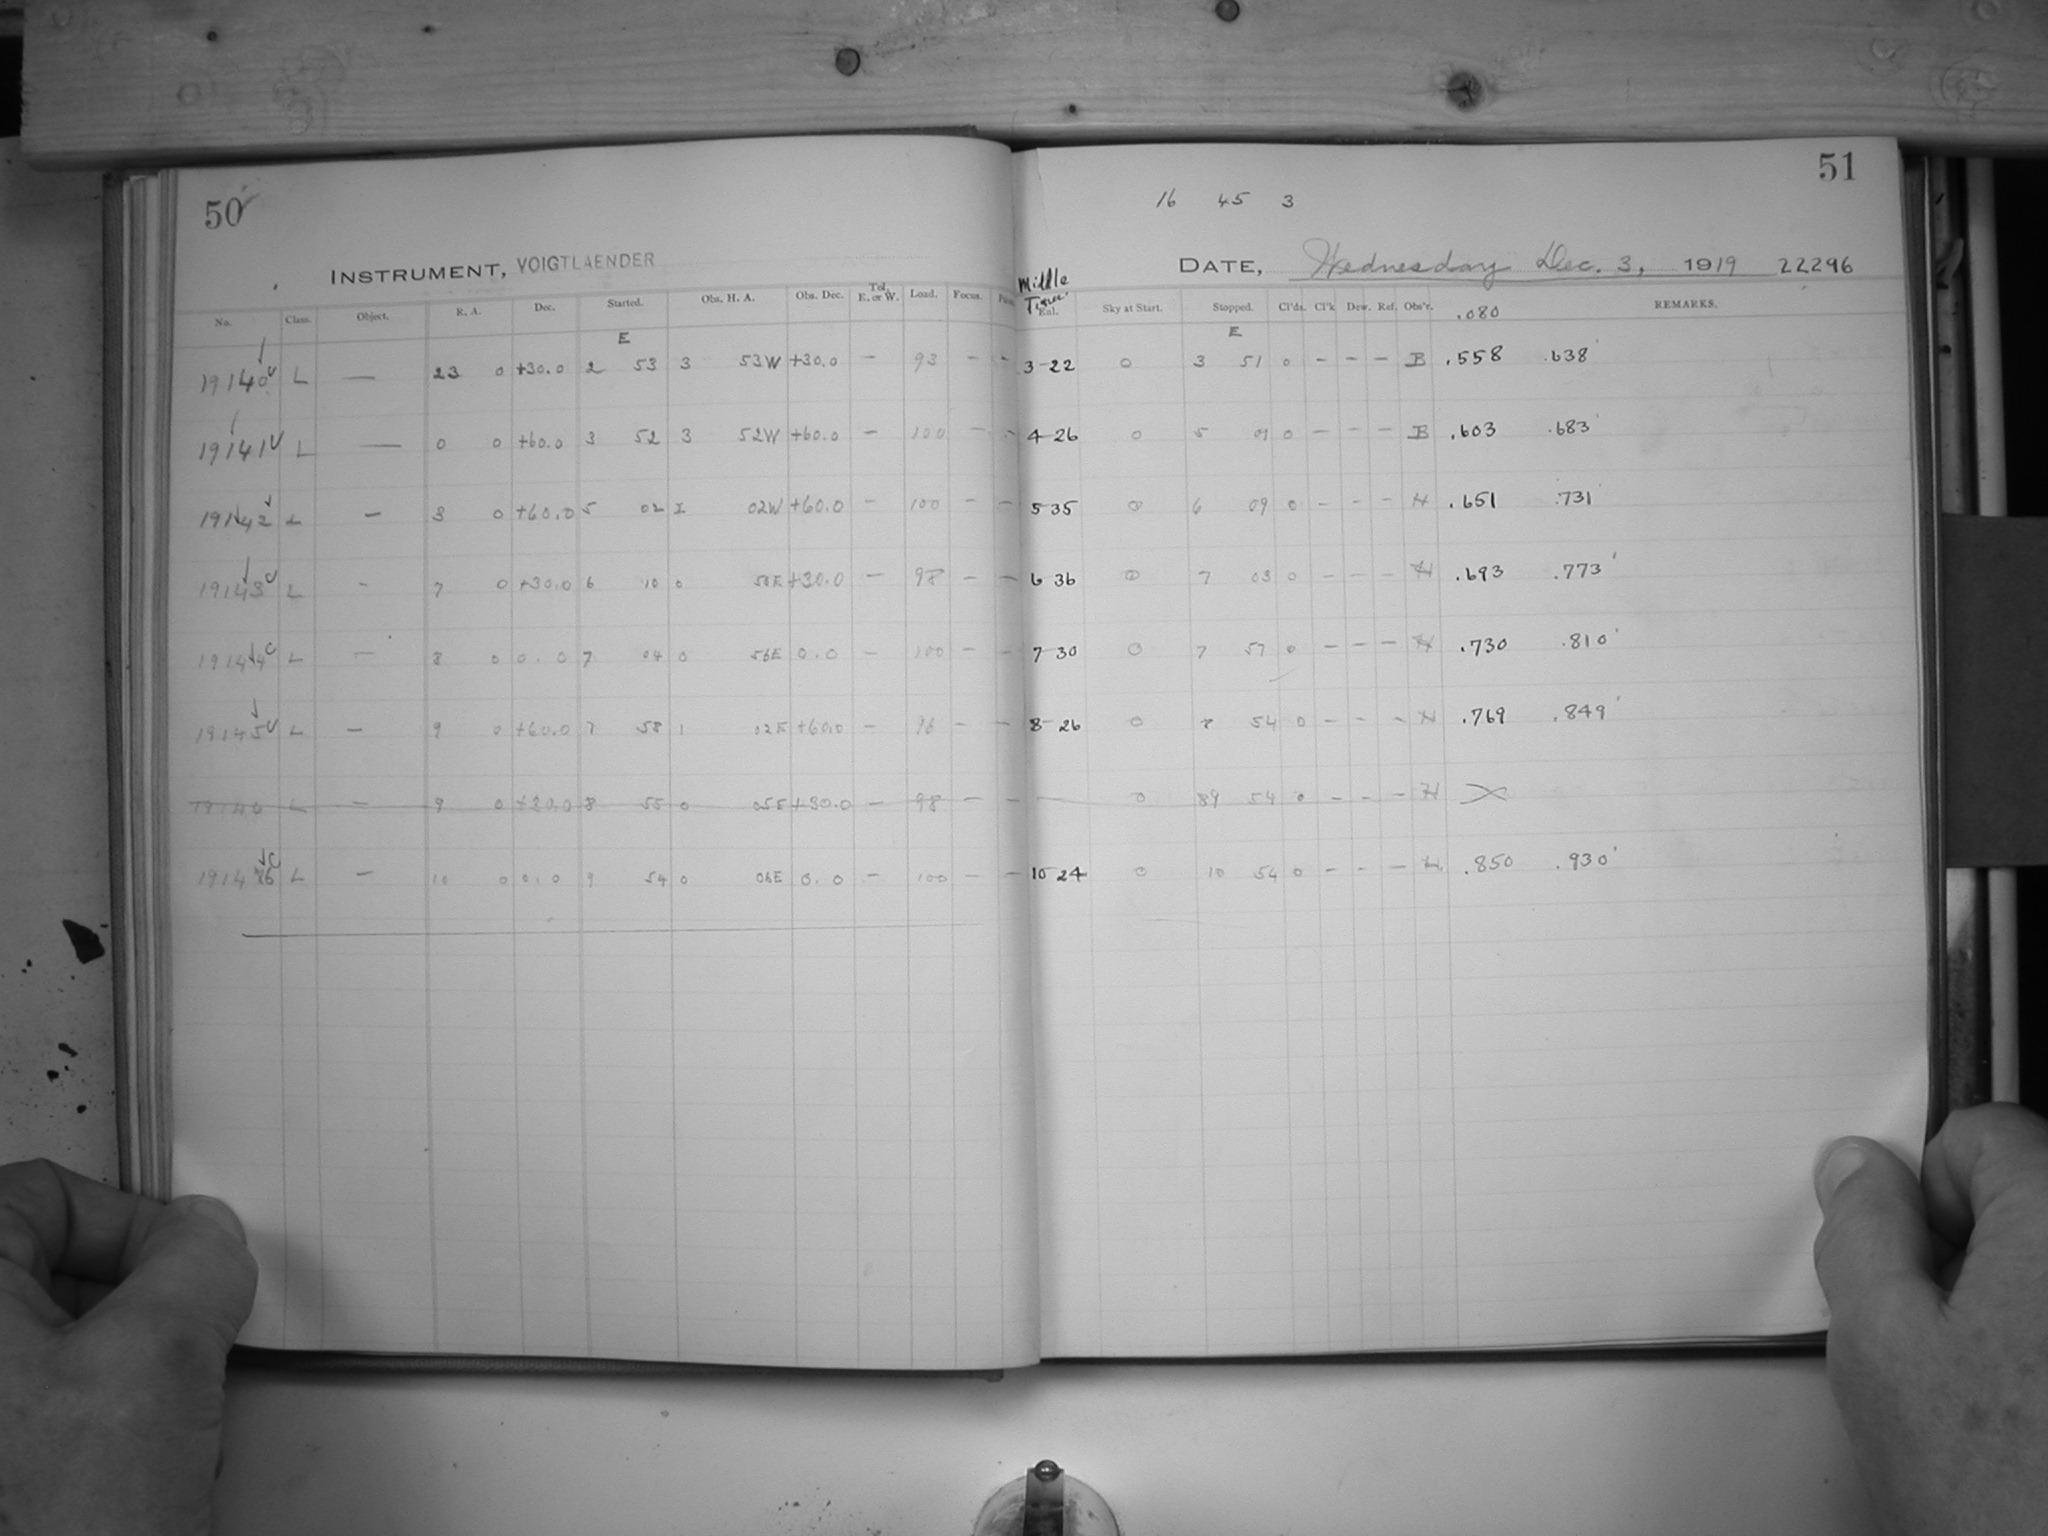 50
51
16 45 3
INSTRUMENT, VOIGTLAENDER
DATE, Wednesday Dec. 3, 1919 22296
No. Class. Object. R. A. Dec. Started. Obs. H. A. Obs. Dec. Tel. E. or W. Load. Focus. Middle Time Enl. Sky at Start. Stopped. Cl'ds. Cl'k Dew. Ref. Obs'r. .080 REMARKS.
E E
19140 L — 23 0 +30.0 2 53 3 53W +30.0 — 93 — — 3-22 0 3 51 0 — — — B .558 .638
19141 L — 0 0 +60.0 3 52 3 52W +60.0 — 100 — — 4-26 0 5 01 0 — — — B .603 .683
19142 L — 3 0 +60.0 5 02 1 02W +60.0 — 100 — — 5 35 0 6 09 0 — — — H .651 .731
19143 L — 7 0 +30.0 6 10 0 50E +30.0 — 98 — — 6 36 0 7 03 0 — — — H .693 .773
19144 L — 8 0 0.0 7 04 0 56E 0.0 — 100 — — 7-30 0 7 57 0 — — — H .730 .810
19145 L — 9 0 +60.0 7 58 1 02E +60.0 — 96 — — 8-26 0 8 54 0 — — — H .769 .849
19146 L — 9 0 +30.0 8 55 0 05E +30.0 — 98 — — — 0 89 54 0 — — — H
19146 L — 10 0 0.0 9 54 0 06E 0.0 — 100 — — 10-24 0 10 54 0 — — — H .850 .930